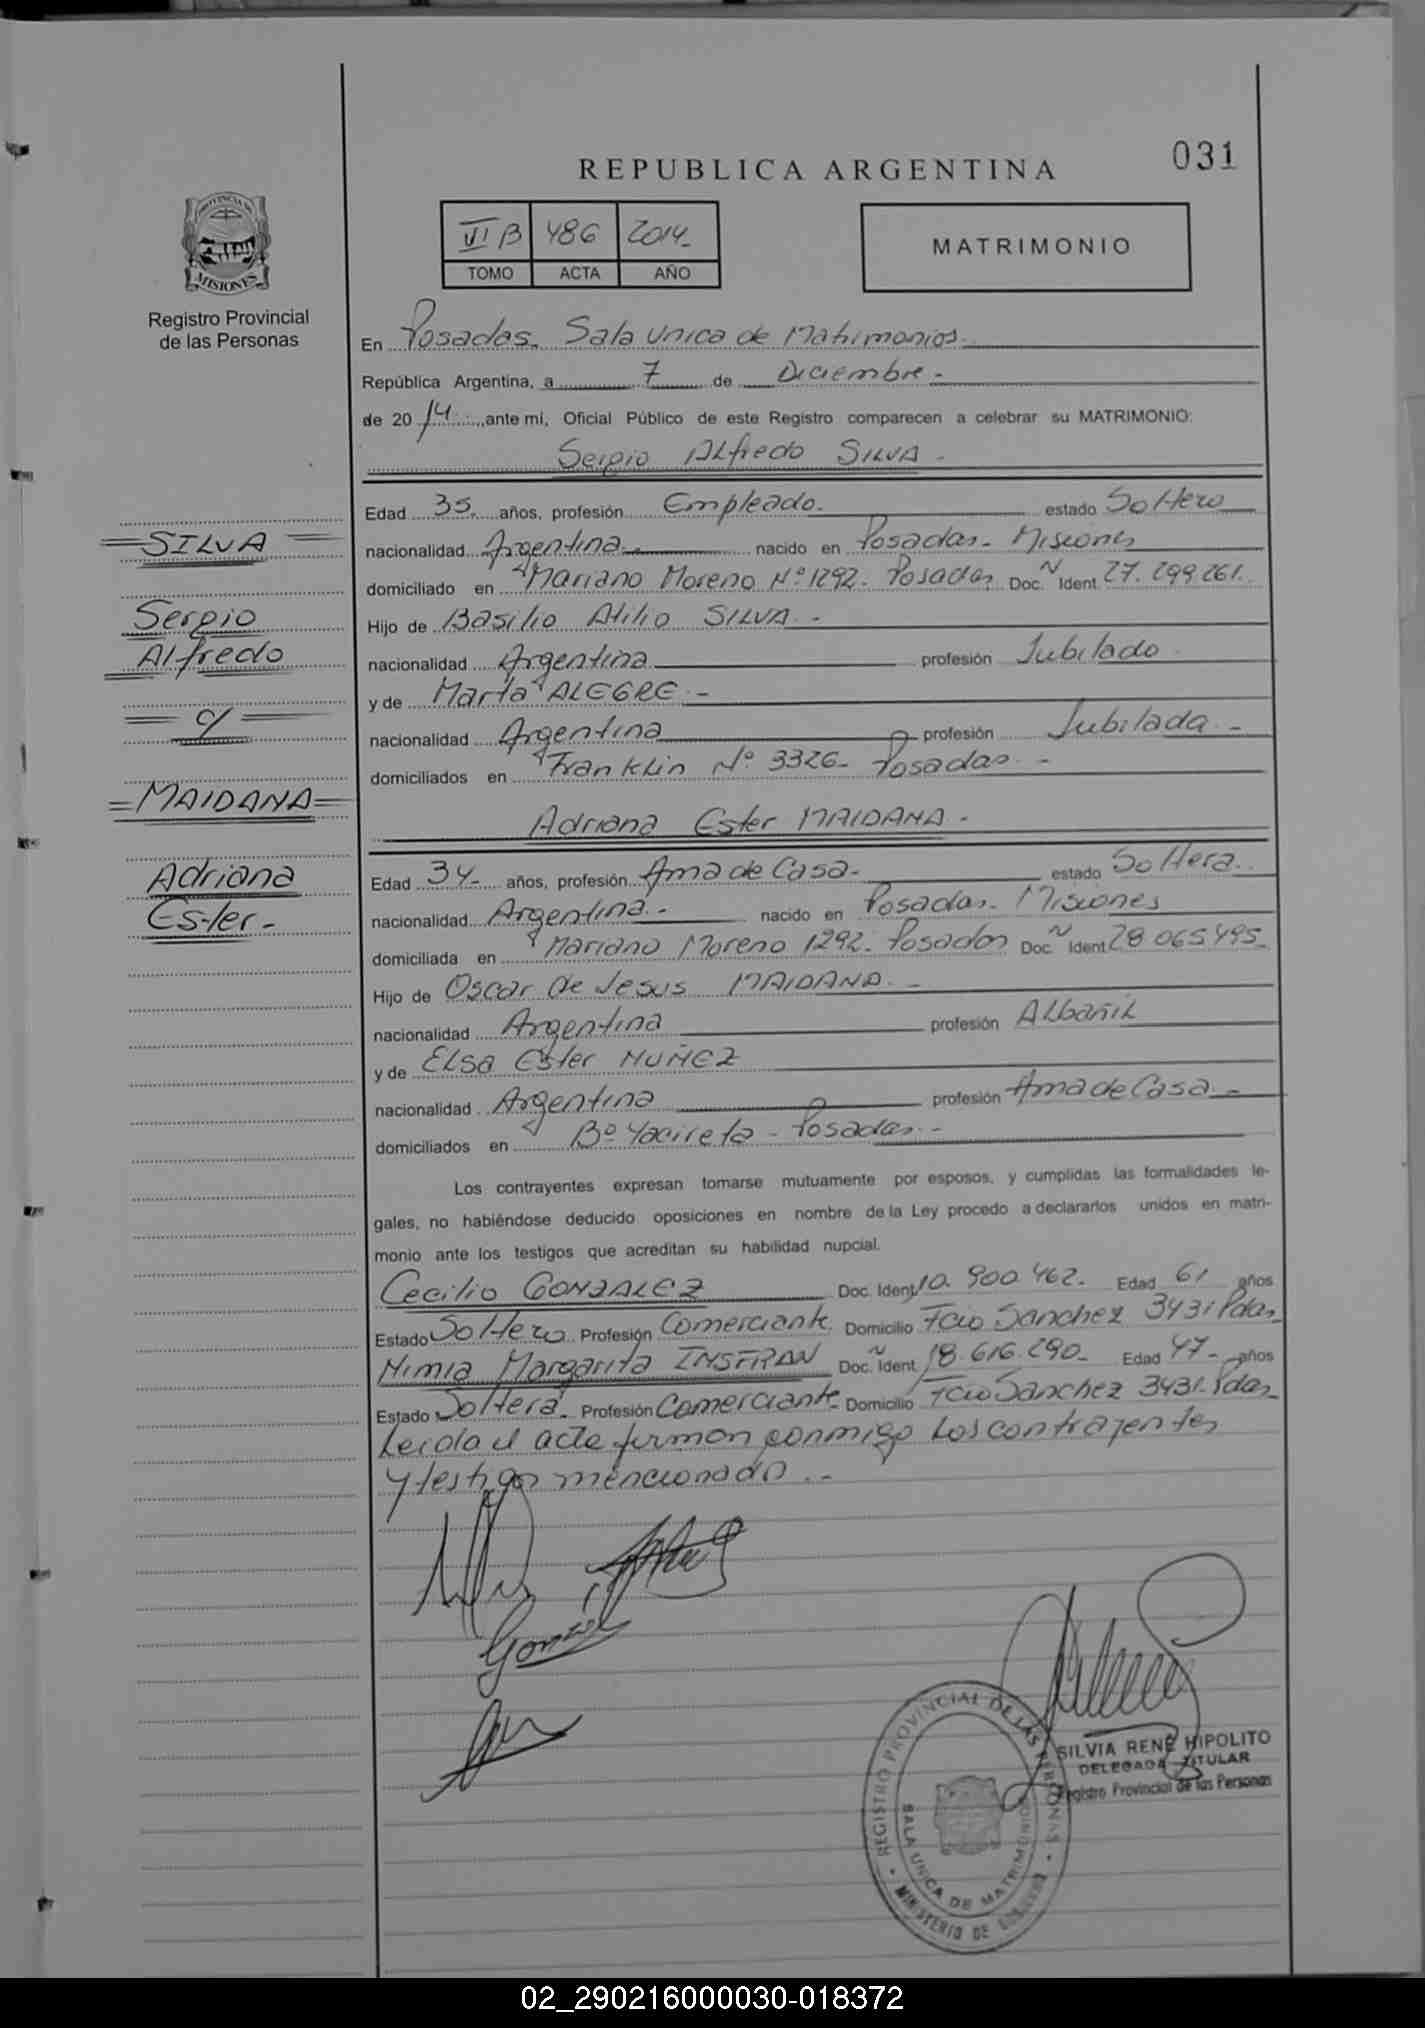 031
REPUBLICA ARGENTINA
VI B 486 2014.-
TOMO ACTA AÑO
MATRIMONIO
PROVINCIA DE
MISIONES
Registro Provincial
de las Personas
En Posadas. Sala Unica de Matrimonios.
República Argentina, a 7 de Diciembre.-
de 2014, ante mi, Oficial Público de este Registro comparecen a celebrar su MATRIMONIO:
Sergio Alfredo SILVA.-
Edad 35. años, profesión Empleado. estado Soltero
nacionalidad Argentina. nacido en Posadas- Misiones
domiciliado en Mariano Moreno Nº 1292. Posadas Doc. Ident. 27.299.261.
Hijo de Basilio Atilio SILVA.-
nacionalidad Argentina profesión Jubilado.
y de Marta ALEGRE.-
nacionalidad Argentina profesión Jubilada.-
domiciliados en Franklin Nº 3326- Posadas.-
Adriana Ester MAIDANA.-
Edad 34- años, profesión Ama de Casa- estado Soltera.
nacionalidad Argentina.- nacido en Posadas- Misiones
domiciliada en Mariano Moreno 1292. Posadas Doc. Ident 28.065.495-
Hijo de Oscar de Jesus MAIDANA.-
nacionalidad Argentina profesión Albañil
y de Elsa Ester NUÑEZ
nacionalidad Argentina profesión Ama de Casa.-
domiciliados en Bº Yacireta - Posadas.-
SILVA
Sergio
Alfredo
c/
MAIDANA
Adriana
Ester.-
Los contrayentes expresan tomarse mutuamente por esposos, y cumplidas las formalidades le-
gales, no habiéndose deducido oposiciones en nombre de la Ley procedo a declararlos unidos en matri-
monio ante los testigos que acreditan su habilidad nupcial.
Cecilio GONZALEZ Doc. Ident 10.900.462. Edad 61 años
Estado Soltero Profesión Comerciante. Domicilio Fcio Sanchez 3431 Pdas.
Nimia Margarita INSFRAN Doc. Ident 18.616.290- Edad 47- años
Estado Soltera- Profesión Comerciante- Domicilio Fcio Sanchez 3431. Pdas-
Leida el acta firman conmigo Los contrayentes
y testigos mencionados.-
SILVIA RENÉ HIPOLITO
DELEGADA TITULAR
Registro Provincial de las Personas
REGISTRO PROVINCIAL DE LAS PERSONAS
SALA UNICA DE MATRIMONIOS
MINISTERIO DE GOBIERNO
02_290216000030-018372